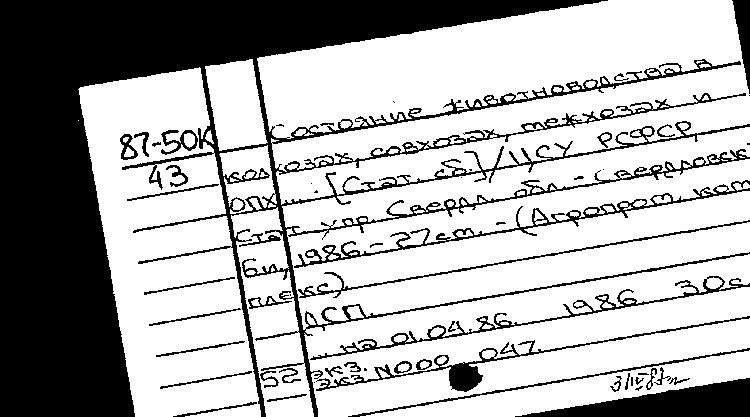 87-50К
43
Состояние животноводства в
колхозах, совхозах, межхозах и
ОПХ... : [Стат. сб.] / ЦСУ РСФСР,
Стат. упр. Свердл. обл. - Свердловск:
Б.и., 1986. - 27 ст. - (Агропром. ком
плекс).
ДСП.
... на 01.04.86. 1986 30с
52 экз.
экз. N000 047.